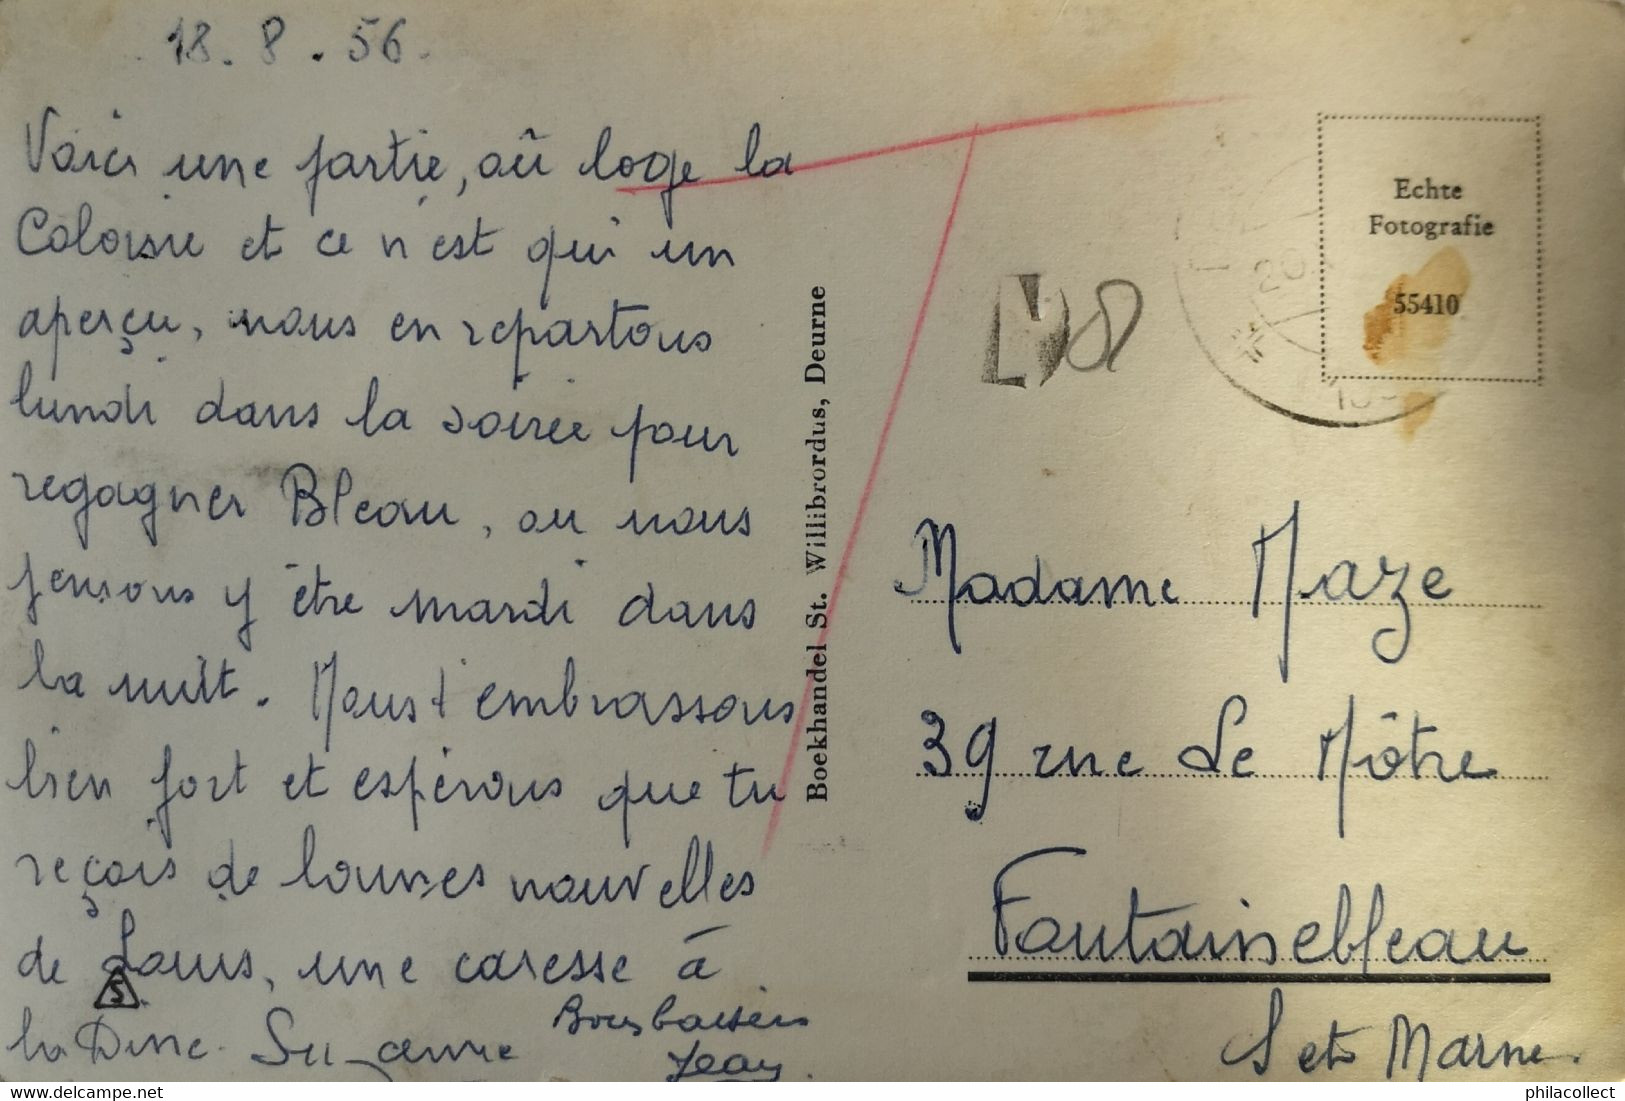 18.8.56.
Voici une partie, où loge la
Colonie et ce n'est qui un
aperçu, nous en repartons
lundi dans la soirée pour
regagner Bleau, ou nous
pensons y être mardi dans
la nuit. Nous t'embrassons
bien fort et espérons que tu
reçois de bonnes nouvelles
de Louis, une caresse à
la Dine. Suzanne
Bons baisers
Jean.
S
Boekhandel St. Willibrordus, Deurne
Echte
Fotografie
55410
20
Madame Maze
39 rue Le Nôtre
Fontainebleau
S et Marne.
philacollect